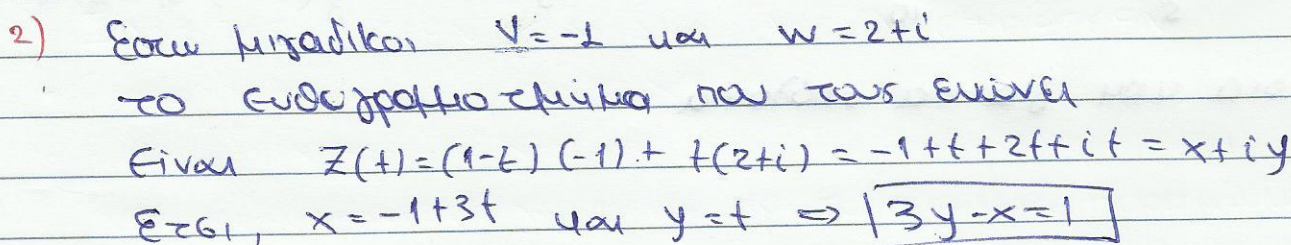 2) Έστω μιγαδικοι V = -1 και w = 2+i
το ευθύγραμμο τμήμα που τους ενώνει
Είναι Z(t) = (1-t)(-1) + t(2+i) = -1+t+2t+it = x+iy
Έτσι, x = -1+3t και y=t ⇒ 3y-x=1